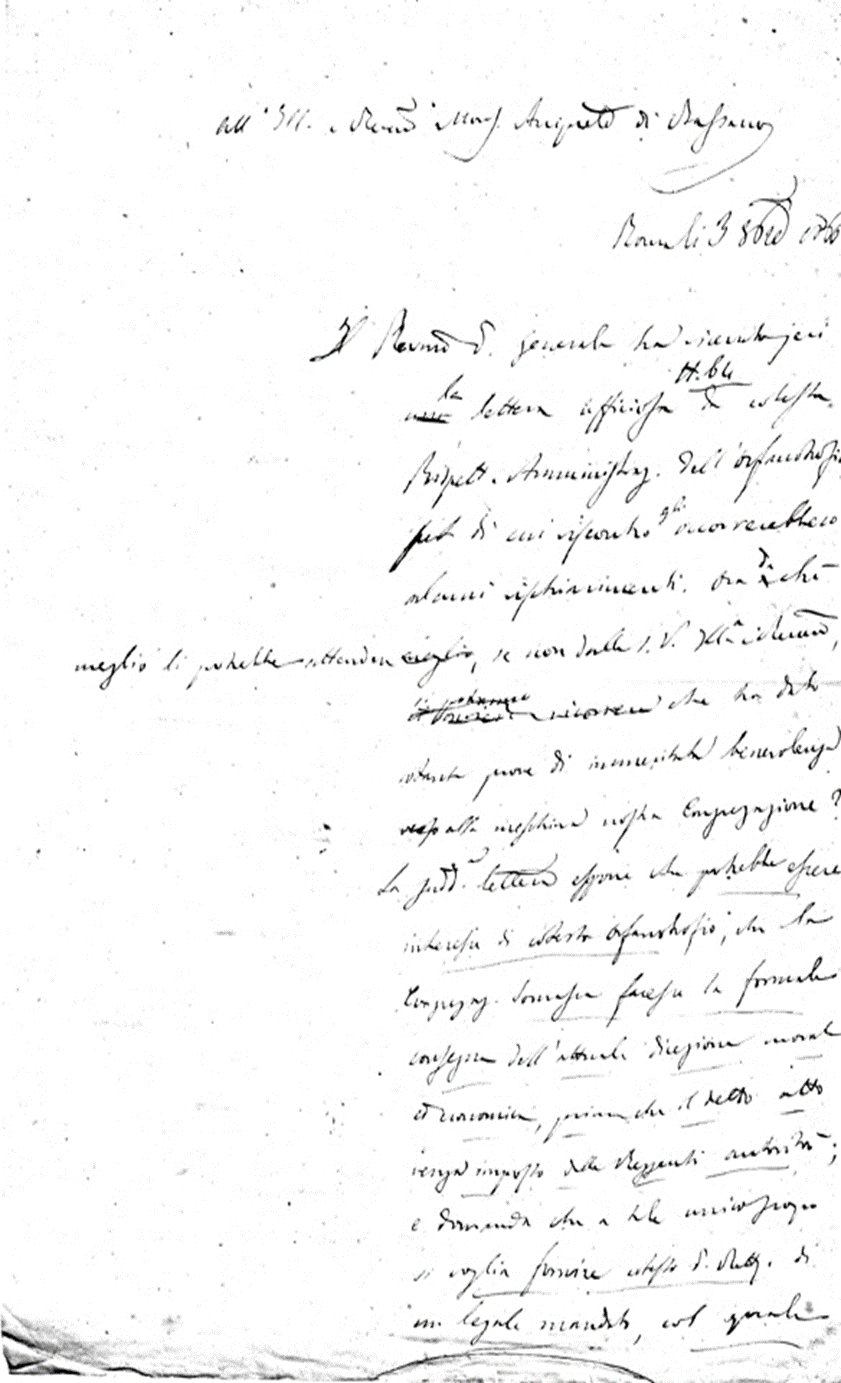 all' Ill. e Rever. Mons. Arciprete di Bassano
Roma li 3 8bre 186
Il Revmo P. Generale ha ricevuto jeri
la
una lettera officiosa di codesta
Rispett. Amministraz. dell'Orfanotrofio
di cui riscontro gli occorrerebbero
alcuni schiarimenti. Ora da chi
meglio li potrebbe attendere meglio, se non dalla S. V. Illma e Revma,
ricorrere che ha dato
cotante prove di immeritata benevolenza
verso alla meschina nostra Congregazione?
La sudda lettera espone che potrebbe essere
interesse di codesto Orfanotrofio, che la
Congregaz. Somasca facesse la formale
consegna dell'attuale direzione morale
ed economica, prima che il detto atto
venga imposto dalle Reggenti autorità;
e domanda che a tale unico scopo
si voglia fornire codesto P. Rett. di
un legale mandato, col quale